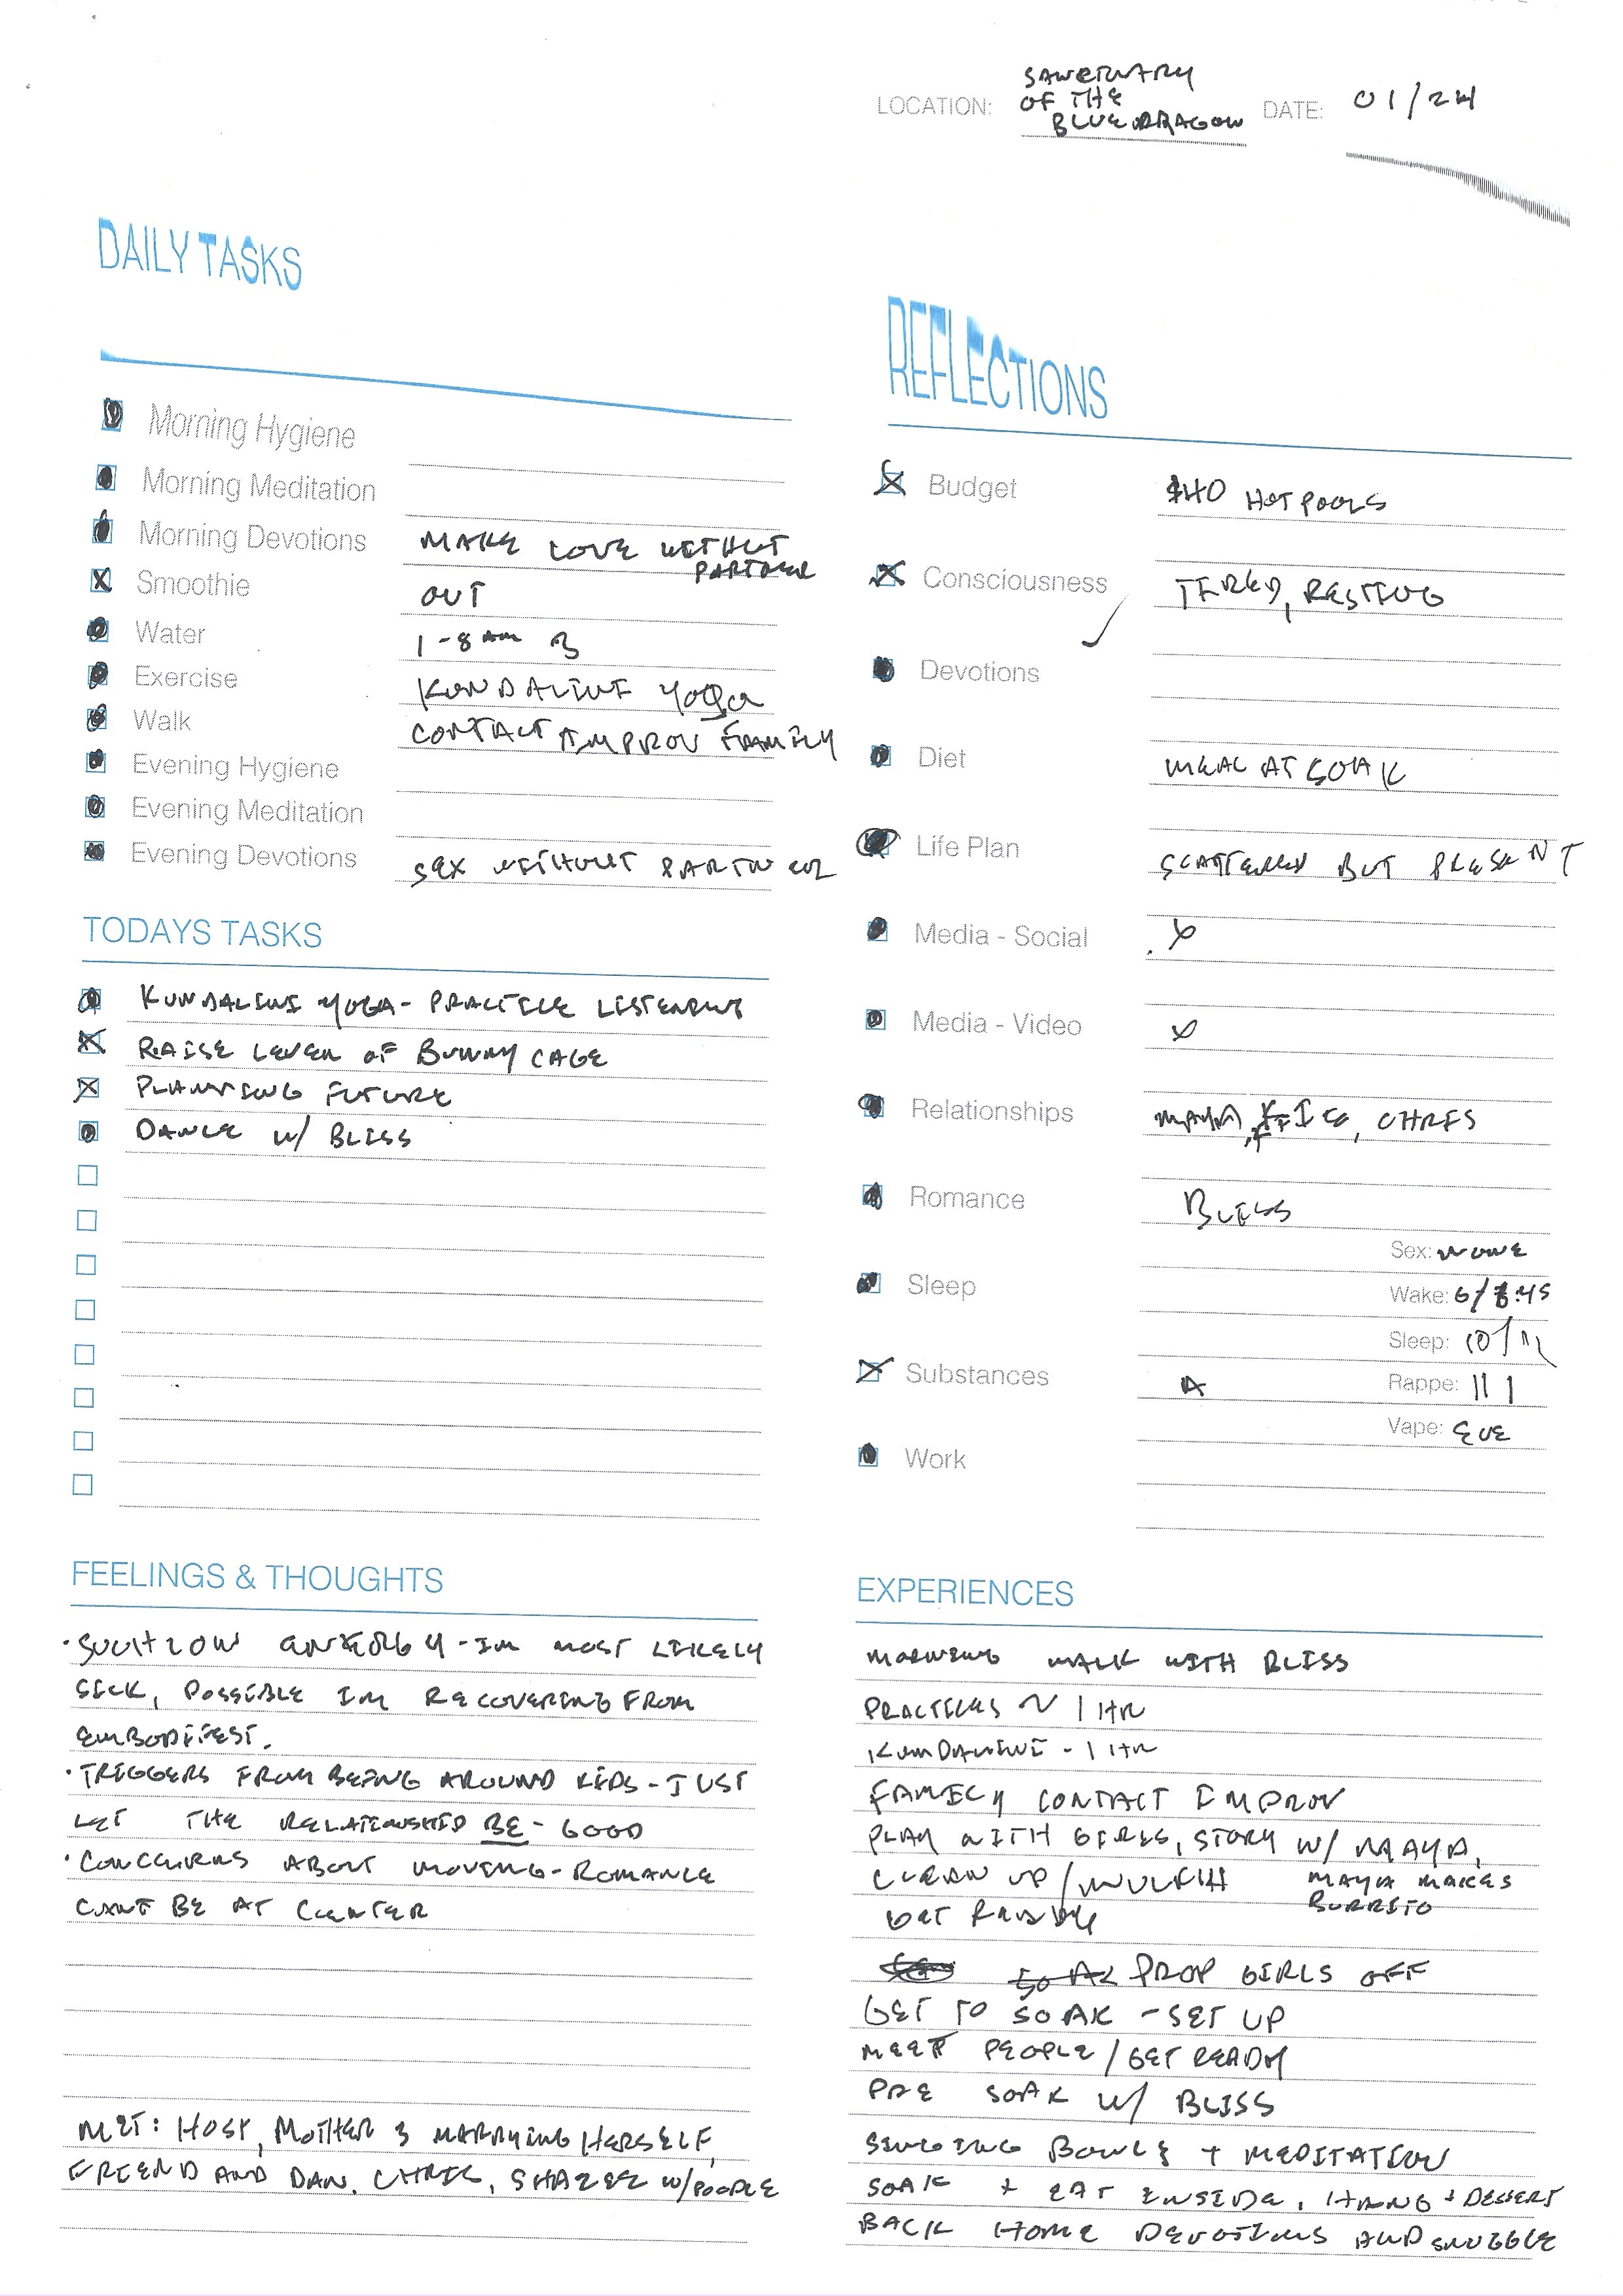 SANCTUARY
LOCATION: OF THE DATE: 01/24
BLUE DRAGON
DAILY TASKS
Morning Hygiene
Morning Meditation
Morning Devotions MAKE LOVE WITHOUT
PARTNER
Smoothie OUT
Water 1-8 AM
Exercise KUNDALINI YOGA
Walk CONTACT IMPROV FAMILY
Evening Hygiene
Evening Meditation
Evening Devotions SEX WITHOUT PARTNER
TODAYS TASKS
KUNDALINI YOGA - PRACTICE LISTENING
RAISE LEVEL OF BUNNY CAGE
PLANNING FUTURE
DANCE W/ BLISS
FEELINGS & THOUGHTS
• SUCH LOW ENERGY - IM MOST LIKELY
SICK, POSSIBLE IM RECOVERING FROM
EMBODIFEST.
• TRIGGERS FROM BEING AROUND KIDS - JUST
LET THE RELATIONSHIP BE - GOOD
• CONCERNS ABOUT MOVING - ROMANCE
CANT BE AT CENTER
MET: HOST, MOTHER 3 MARRYING HERSELF,
FRIEND AND DAN. CHRIS, W/PEOPLE
REFLECTIONS
Budget $40 HOT POOLS
Consciousness TIRED, RESTING
Devotions
Diet MEAL AT SOAK
Life Plan SCATTERED BUT PRESENT
Media - Social
Media - Video
Relationships MAYA, CHRIS
Romance BLISS
Sex: NONE
Sleep Wake: 6/8:45
Sleep: 10/11
Substances Rappe: III I
Vape: EVE
Work
EXPERIENCES
MORNING WALK WITH BLISS
PRACTICES ~ 1 HR
KUNDALINI - 1 HR
FAMILY CONTACT IMPROV
PLAY WITH GIRLS, STORY W/ MAYA,
CLEAN UP / MAYA MAKES
GET READY BURRITO
SOAK DROP GIRLS OFF
GET TO SOAK - SET UP
MEET PEOPLE / GET READY
PRE SOAK W/ BLISS
SINGING BOWLS + MEDITATION
SOAK + EAT INSIDE, HANG + DESSERT
BACK HOME DEVOTIONS AND SNUGGLE